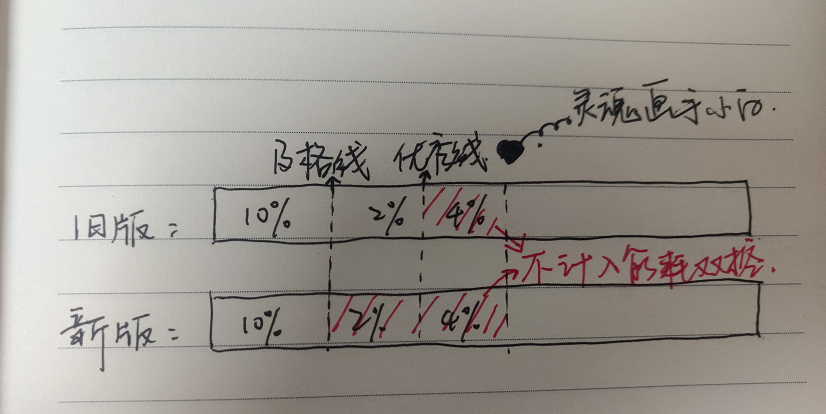 灵魂画手小江.
及格线 优末线
旧版: 10% 2% 4%
不计入能耗双控.
新版: 10% 2% 4%